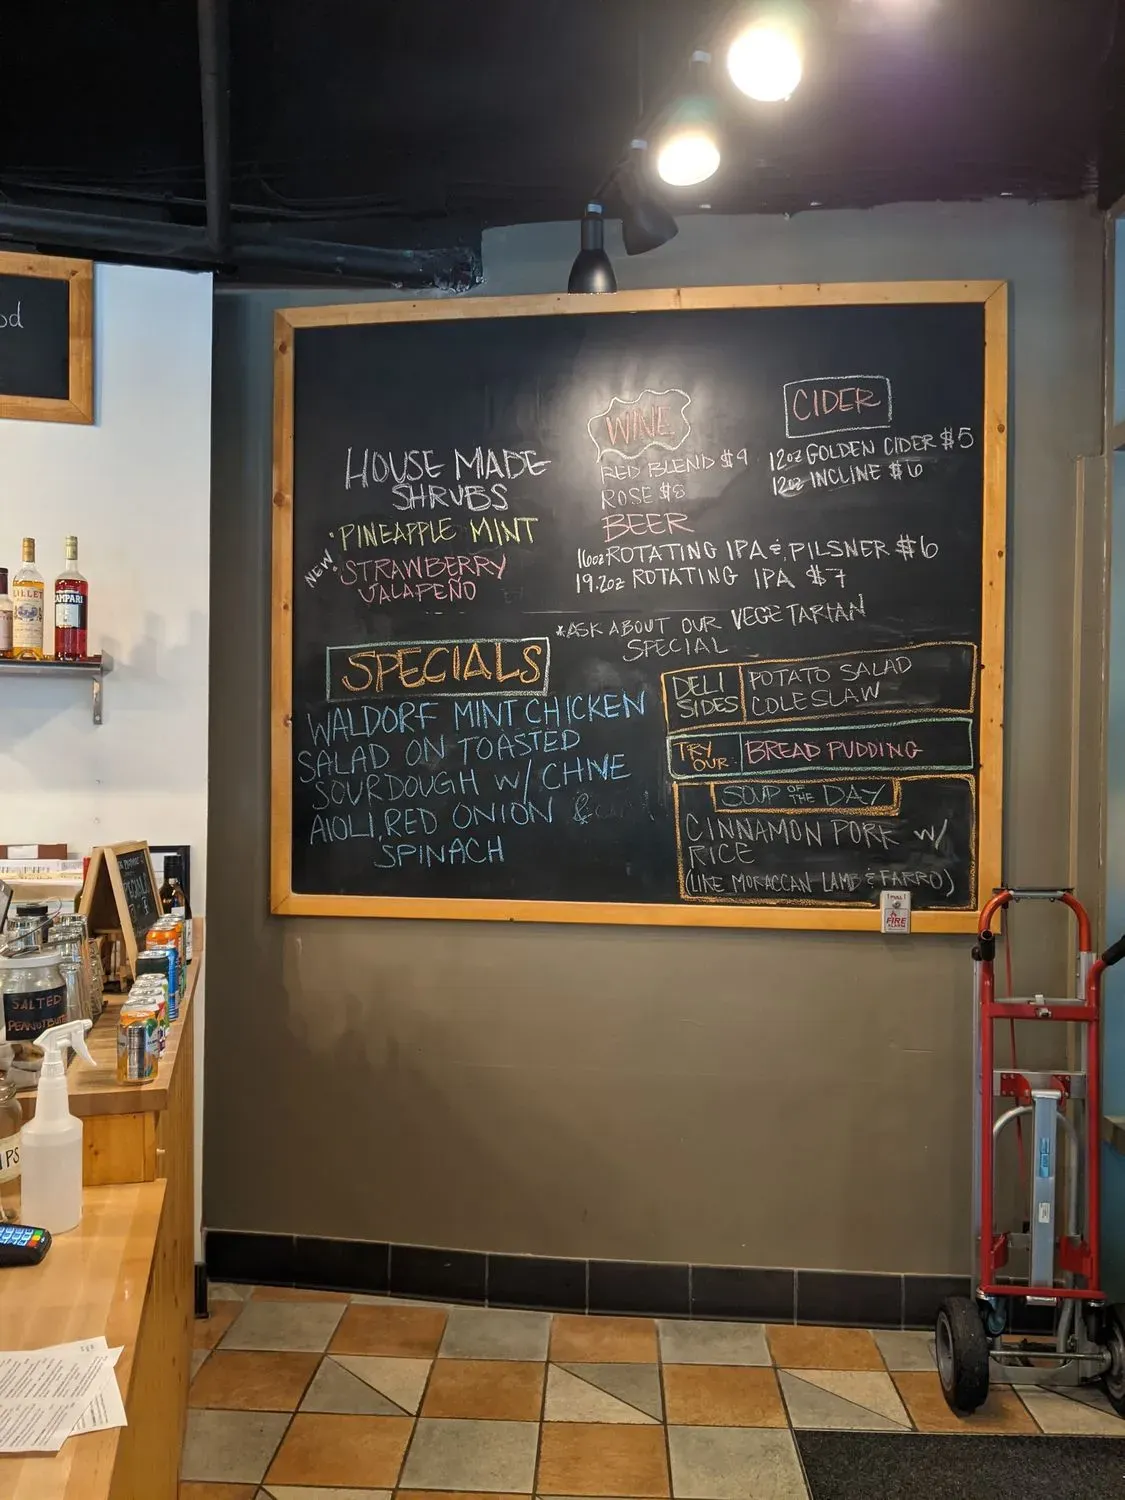 od
HOUSE MADE
SHRUBS
PINEAPPLE MINT
NEW
STRAWBERRY
JALAPEÑO
WINE
RED BLEND $9
ROSE $8
BEER
16oz ROTATING IPA & PILSNER $6
19.2oz ROTATING IPA $7
CIDER
12oz GOLDEN CIDER $5
12oz INCLINE $6
*ASK ABOUT OUR VEGETARIAN
SPECIAL
SPECIALS
WALDORF MINT CHICKEN
SALAD ON TOASTED
SOURDOUGH W/ CHIVE
AIOLI, RED ONION &
SPINACH
DELI
SIDES
POTATO SALAD
COLESLAW
TRY
OUR
BREAD PUDDING
SOUP OF THE DAY
CINNAMON PORK W/
RICE
(LIKE MORACCAN LAMB & FARRO)
PULL
FIRE
LILLET
CAMPARI
SALTED
PEANUT BUTTER
IPS